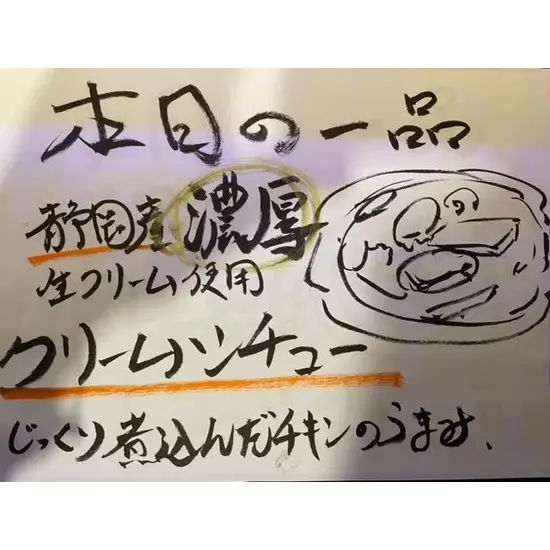 本日の一品
静岡産 濃厚
生クリーム使用
クリームシチュー
じっくり煮込んだチキンのうまみ、